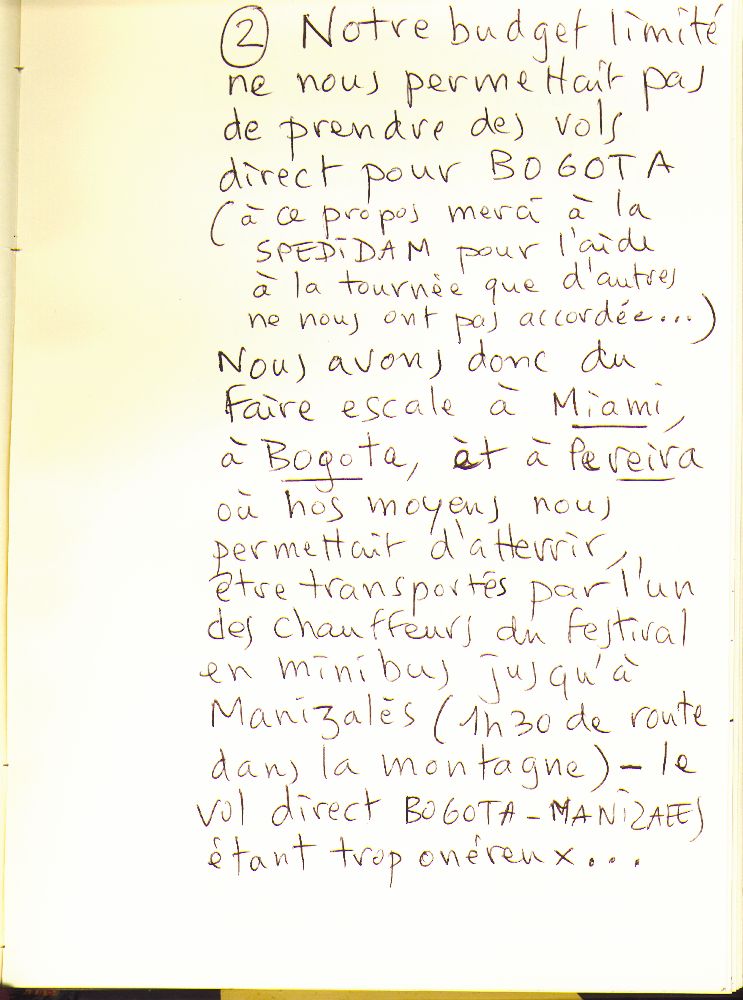 ② Notre budget limité
ne nous permettait pas
de prendre des vols
direct pour BOGOTA
(à ce propos merci à la
SPEDIDAM pour l'aide
à la tournée que d'autres
ne nous ont pas accordée...)
Nous avons donc du
faire escale à Miami,
à Bogota, et à Pereira
où nos moyens nous
permettait d'atterrir,
être transportés par l'un
des chauffeurs du festival
en minibus jusqu'à
Manizalès (1h30 de route
dans la montagne) - le
vol direct BOGOTA - MANIZALES
étant trop onéreux...